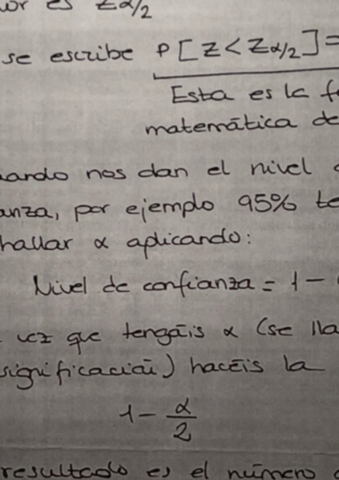 or es Zα/2
se escribe P[Z<Zα/2]=
Esta es la
matemática de
nos dan el nivel
por ejemplo 95%
hallar α aplicando:
Nivel de confianza = 1 -
vez que tengáis α (se
significación) hacéis la
1 - α/2
resultado es el número